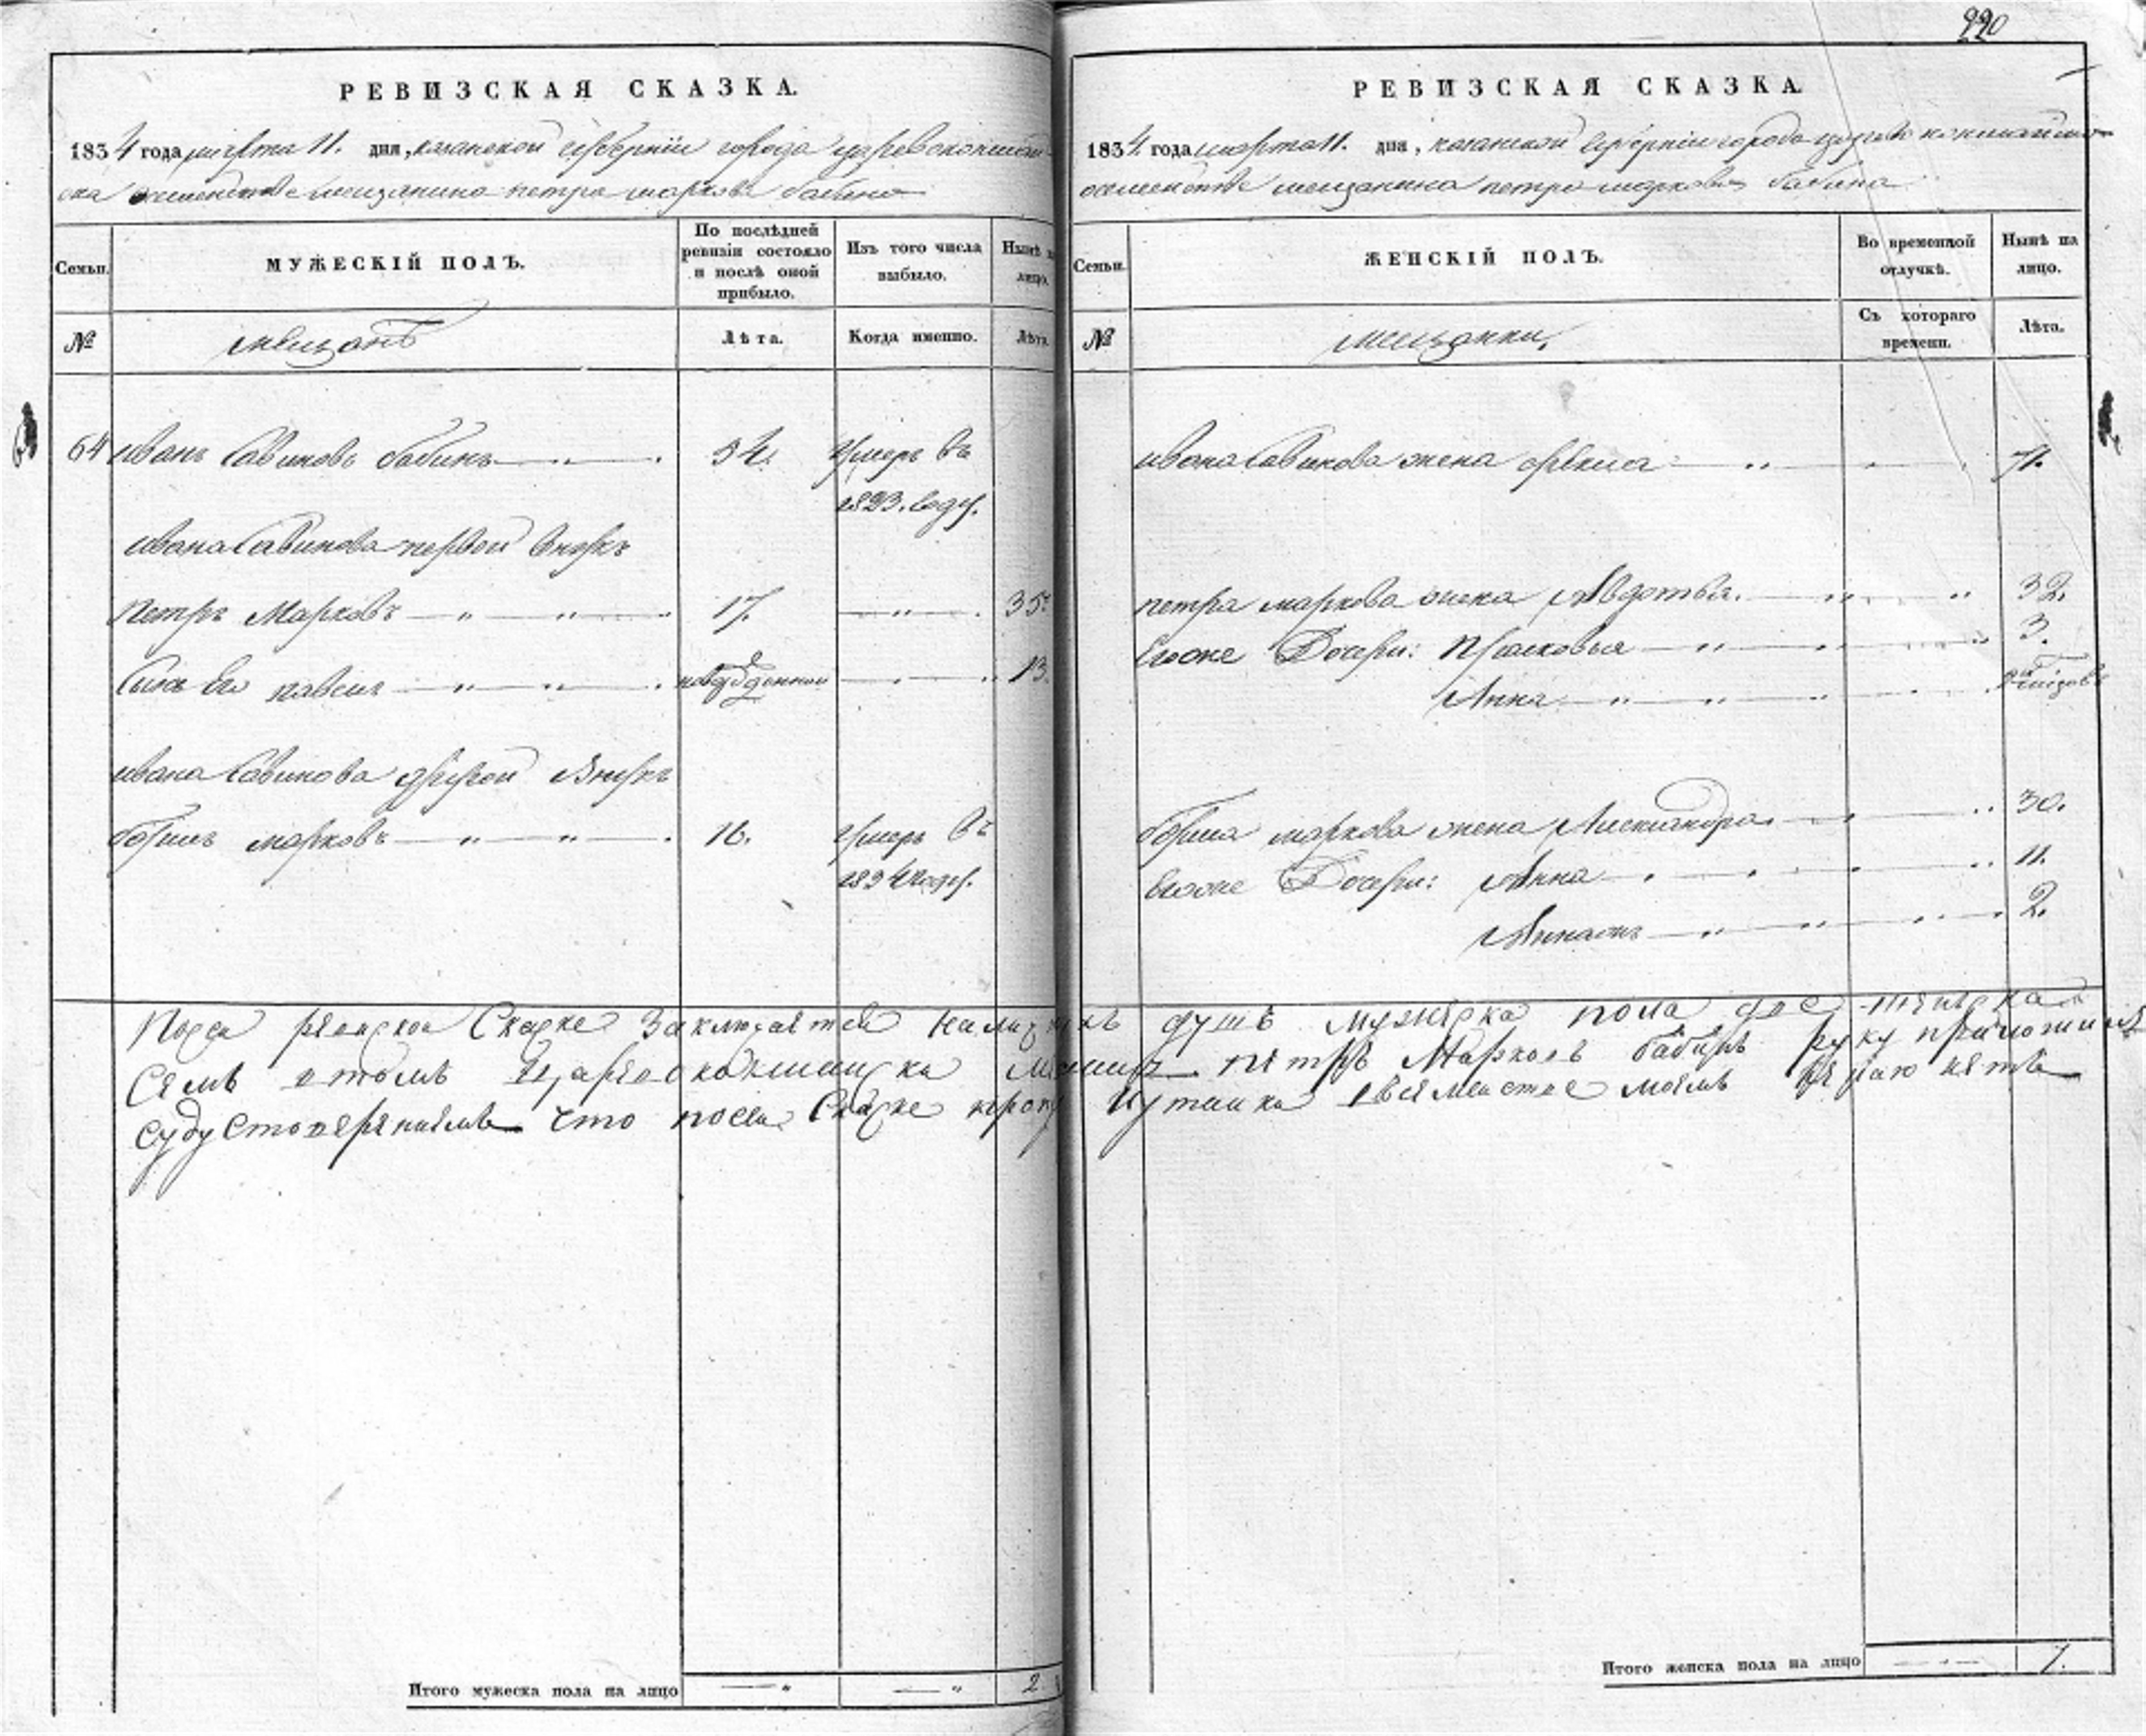 220
РЕВИЗСКАЯ СКАЗКА.
1834 года марта 11. дня, казанской губернiи города царевококшай
ска осемействе мещанина петра маркова бабина
Семьи.
МУЖЕСКІЙ ПОЛЪ.
По послѣдней ревизіи состояло и послѣ оной прибыло.
Изъ того числа выбыло.
Нынѣ на лицо.
№
мещанъ
Лѣта.
Когда именно.
Лѣта.
64 иванъ Савиновъ бабинъ 54. умеръ въ
1823. году.
ивана Савинова первой внукъ
петръ Марковъ 17. 35.
Сынъ Его павелъ новорожденной 13
ивана Савинова другой Внукъ
борисъ марковъ 16. умеръ въ
1834 году.
Итого мужеска пола на лицо 2
РЕВИЗСКАЯ СКАЗКА.
1834. года марта 11. дня, казанской губернiи города царевококшайска
осемействе мещанина петра маркова бабина
Семьи.
ЖЕНСКІЙ ПОЛЪ.
Во временной отлучкѣ.
Нынѣ на лицо.
№
мещанки.
Съ котораго времени.
Лѣта.
ивана Савинова жена 71.
петра маркова жена Авдотья. 32.
Егоже Дочери: Прасковья 3.
Анна
бориса маркова жена Александра 30.
Егоже Дочери: Анна 11.
2.
Посей Скаске Заключается налицо душъ мужеска пола две женска
Семь втомъ Царевококшайска петръ Марковъ бабинъ руку приложилъ
что посей Скаске семействе моемъ
Итого женска пола на лицо 7.